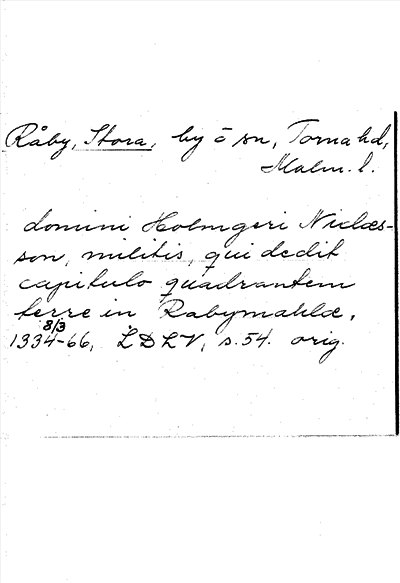 Råby, Stora, by o sn, Torna hd,
Malm. l.
domini Holmgeri Niclæs-
son, militis, qui dedit
capitulo quadrantem
terre in Rabymahlæ.
8/3
1334-66, LDLV, s. 54. orig.